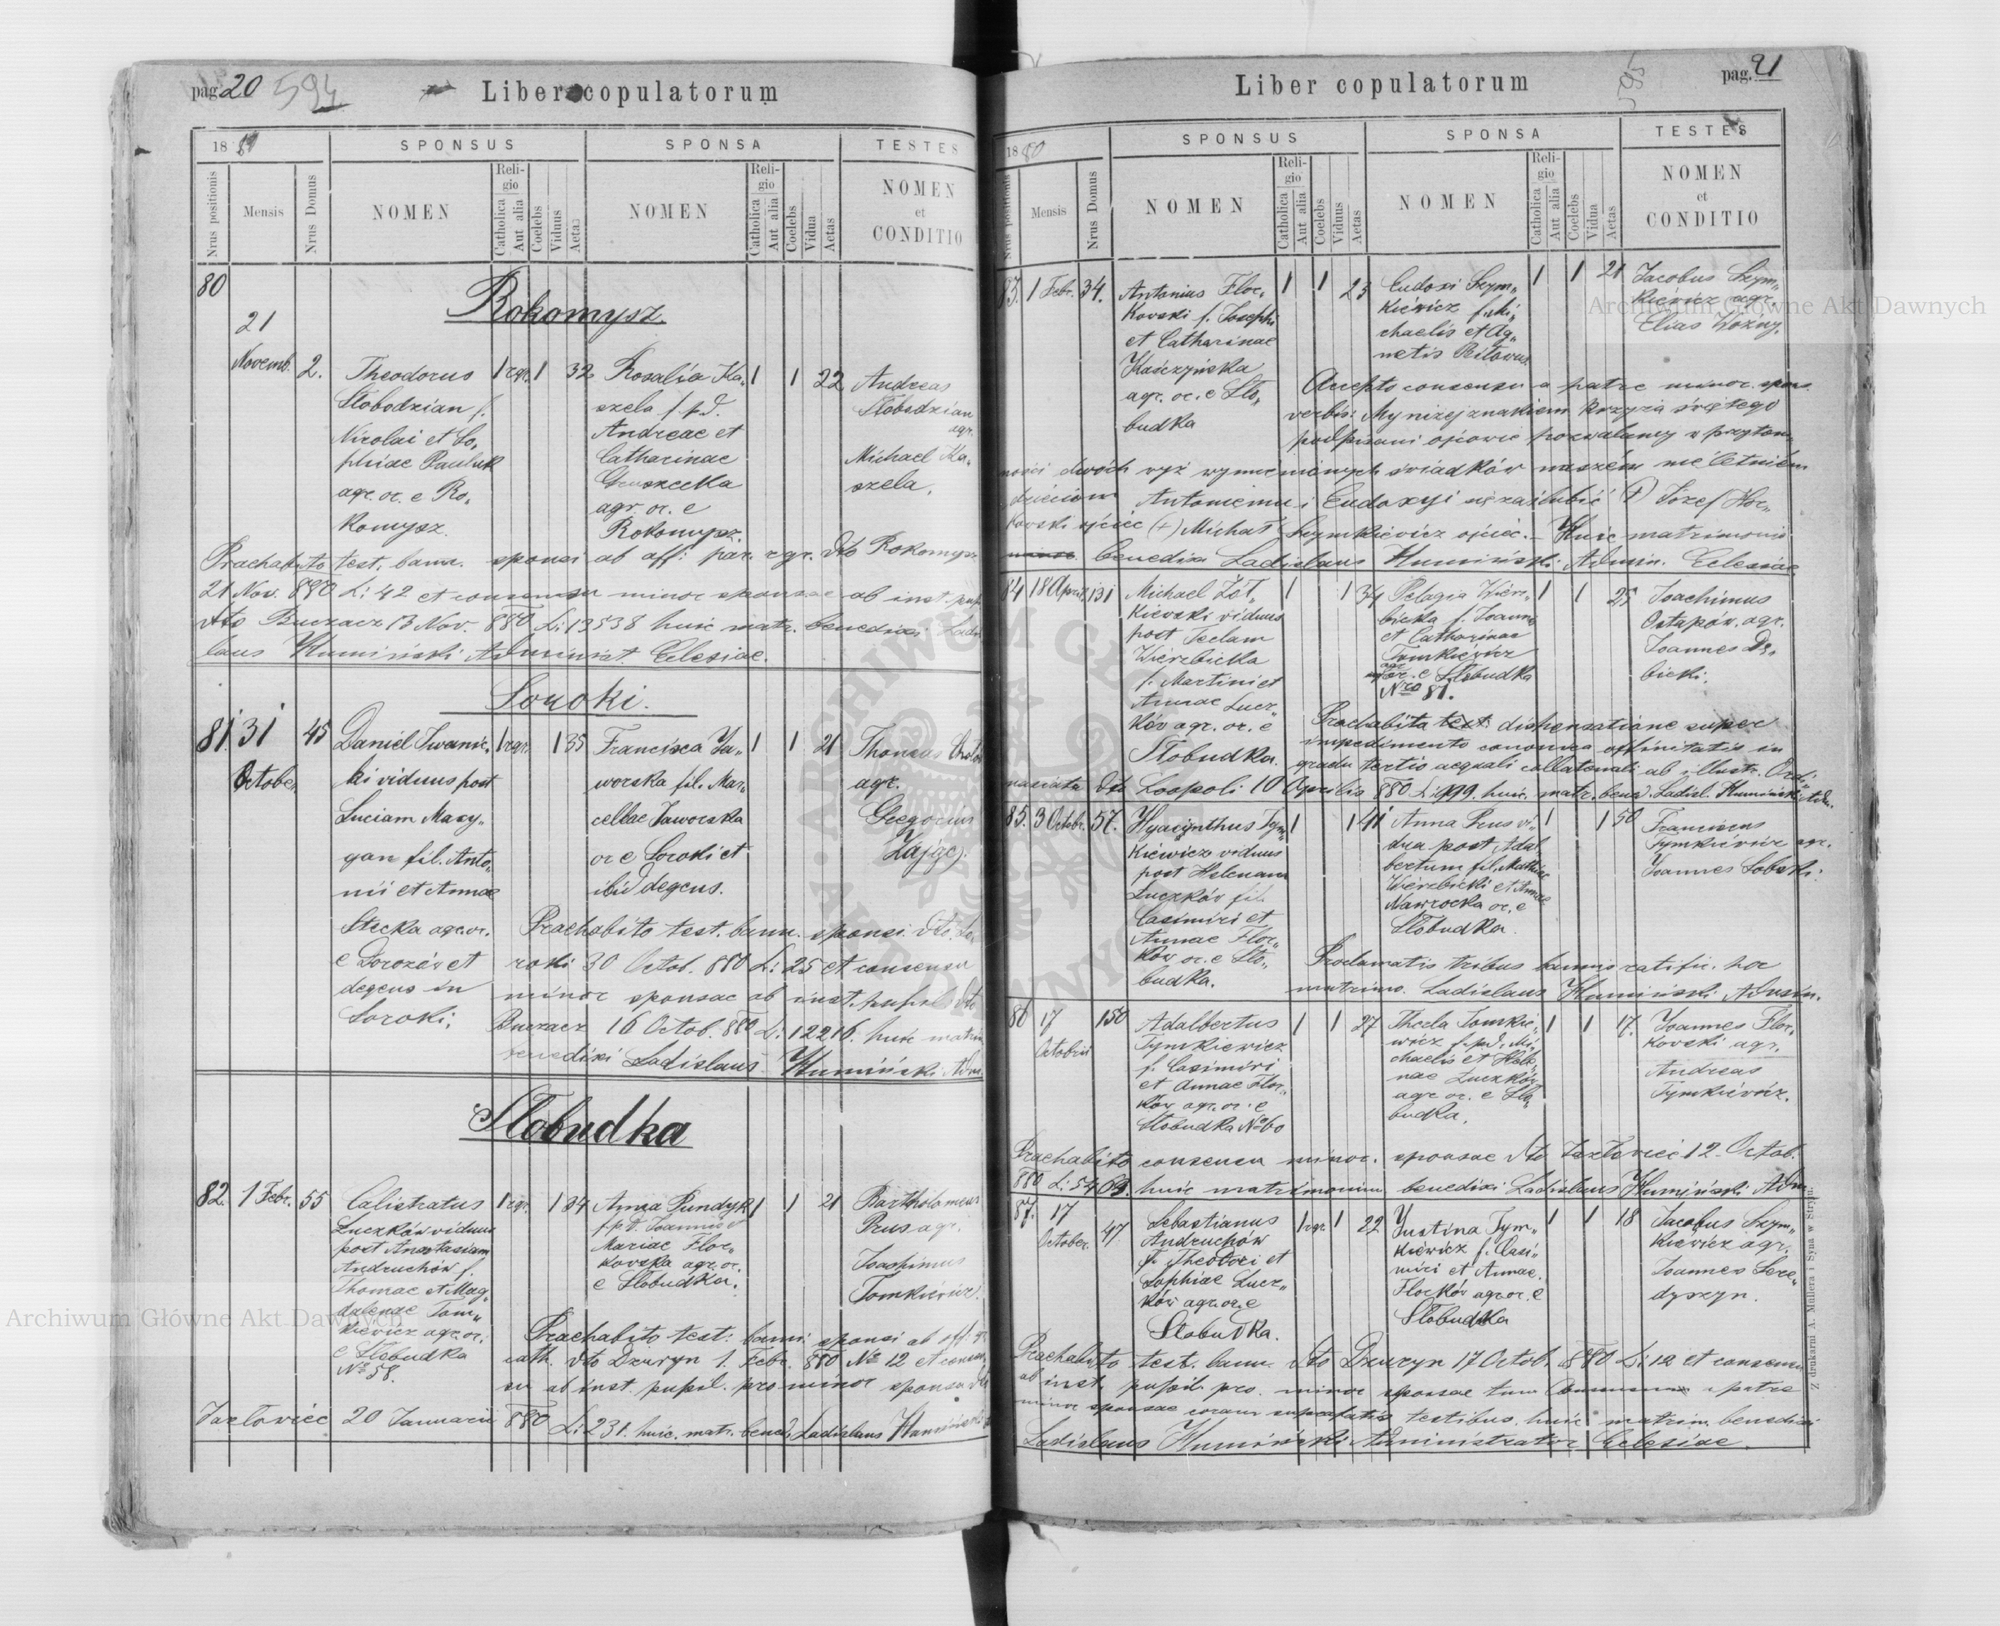 pag. 20 594
Liber copulatorum
18 80
SPONSUS
SPONSA
TESTES
Nrus positionis
Mensis
Nrus Domus
NOMEN
Religio
Catholica
Aut alia
Coelebs
Viduus
Aetas
NOMEN
Religio
Catholica
Aut alia
Coelebs
Vidua
Aetas
NOMEN
et
CONDITIO
80
Rokomysz.
21
Novemb. 2.
Theodorus
Słobodzian f.
Nicolai et So„
phiae Pauluk
agr. or. e Ro„
komysz.
1 rgr. 1 32
Rosalia Ka„
szela f. p. d.
Andreae et
Catharinae
Gruszecka
agr. or. e
Rokomysz.
1 1 22
Andreas
Słobodzian
agr.
Michael Ka„
szela.
Praehabito test. bann. sponsi ab off. par. r. gr. dto Rokomysz
21 Nov. 880 L: 42 et consensu minor sponsae ab inst. pup.
dto Buczacz 13 Nov. 880 L: 13538 huic matr. benedixi Ladis
laus Humiński Administ. Eclesiae.
Soroki.
81. 31
October
45
Daniel Iwanic„
ki viduus post
Luciam Mary„
gan fil. Anto„
nii et Annae
Stecka agr. or.
e Dorozów et
degens in
Soroki.
1 rgr. 1 35
Francisca Ja„
worska fil. Mar„
cellae Jaworska
or. e Soroki et
ibid degens.
1 1 21
Thomas
agr.
Gregorius
Zając.
Praehabito test. bann. sponsi dto So„
roki 30 Octob. 880 L: 25 et consensu
minor sponsae ab inst. pupil. dto
Buczacz 16 Octob. 880 L: 12216. huic matrim
benedixi Ladislaus Humiński Adm.
Słobudka
82. 1 Febr. 55
Calistratus
Luczków viduus
post Anastasiam
Andruchów f.
Thomae et Mag„
dalenae Tom„
kiewicz agr. or.
e Słobudka
No 58.
1 rgr. 1 34
Anna Pundyk
f. p. d. Joannis et
Mariae Flor„
kowska agr. or.
e Słobudka.
1 1 21
Bartholomeus
Prus agr.
Joachimus
Tomkiewicz.
Praehabito test. bann. sponsi ab off. gr.
cath. dto Dzuryn 1. Febr. 880 No 12 et consen„
su ab inst. pupil. pro minor sponsa dto
Jazłowiec 20 Januarii 880 L: 231. huic. matr. bened. Ladislaus Humiński
Liber copulatorum
595 pag. 21
18 80
SPONSUS
SPONSA
TESTES
Nrus positionis
Mensis
Nrus Domus
NOMEN
Religio
Catholica
Aut alia
Coelebs
Viduus
Aetas
NOMEN
Religio
Catholica
Aut alia
Coelebs
Vidua
Aetas
NOMEN
et
CONDITIO
83. 1 Febr. 34.
Antonius Flor„
kowski f. Josephi
et Catharinae
Kańczyńska
agr. or. e Sło„
budka
1 1 23
Eudoxi Szym„
kiewicz f. Mi„
chaelis et Ag„
netis
1 1 21
Jacobus Szym„
kiewicz agr.
Elias Woźny.
Accepto consensu a patre minor. spons.
verbis: My niżej znakiem krzyża świętego
podpisani ojcowie pozwalamy w przytom„
ności dwóch wyż wymienionych świadków naszém nieletniém
dzieciom Antoniemu i Eudoxyi się zaślubić (+) Józef Flor„
kowski ojciec (+) Michał Szymkiewicz ojciec. Huic matrimonio
benedixi Ladislaus Humiński Admin. Eclesiae.
84 18 April. 131
Michael Żół„
kiewski viduus
post Teclam
Wierzbicka
f. Martini et
Annae Lucz„
ków agr. or. e
Słobudka.
1 1 34
Pelagia Wierz„
bicka f. Joannis
et Catharinae
Tomkiewicz
agr. or. e Słobudka
Nro 81.
1 1 25
Joachimus
Ostapów. agr.
Joannes Dę„
bicki.
Praehabita dispensatione super
impedimento canonico affinitatis in
gradu tertio aequali collaterali ab illustr. Ordi„
nariatu dto Leopoli 10 Aprilis 880 L: 999. huic. matr. bened. Ladisl. Humiński Adm.
85. 3 Octobr. 57.
Hyacynthus Tym„
kiewicz viduus
post Helenam
Luczków fil.
Casimiri et
Annae Flor„
ków or. e Sło„
budka.
1 1 41
Anna Prus vi„
dua post Adal
bertum fil. Mathiae
Wierzbicki et Annae
Nawrocka or. e
Słobudka.
1 1 50
Franciscus
Tymkiewicz agr.
Joannes Sobski.
Proclamatis tribus bannis ratific. hoc
matrimo. Ladislaus Humiński Admin.
86 17
Octobris
150
Adalbertus
Tymkiewicz
f. Casimiri
et Annae Flor„
ków agr. or. e
Słobudka No 60
1 1 27
Thecla Tomkie„
wicz f. p. d. Mi„
chaelis et Hele„
nae Luczków
agr. or. e Sło„
budka.
1 1 17.
Joannes Flor„
kowski agr.
Andreas
Tymkiewicz.
Praehabito consensu minor. sponsae dto Jazłowiec 12. Octob.
880 L: 5403. huic matrimonium benedixi Ladislaus Humiński Adm.
87. 17
October.
47
Sebastianus
Andruchów
f. Theodori et
Sophiae Lucz„
ków agr. or. e
Słobudka.
1 rgr 1 22
Justina Tym„
kiewicz f. Casi„
miri et Annae
Florków agr. or. e
Słobudka
1 1 18
Jacobus Szym„
kiewicz agr.
Joannes Sere„
dyszyn.
Praehabito test. bann. dto Dzuryn 17 Octob. 880 L: 12 et consensu
ab inst. pupil. pro. minor sponsae tum a patre
minor sponsae coram testibus. huic matrim. benedixi
Ladislaus Humiński Administrator Eclesiae.
Z drukarni A. Müllera i Syna w Stryju.
Archiwum Główne Akt Dawnych
Archiwum Główne Akt Dawnych